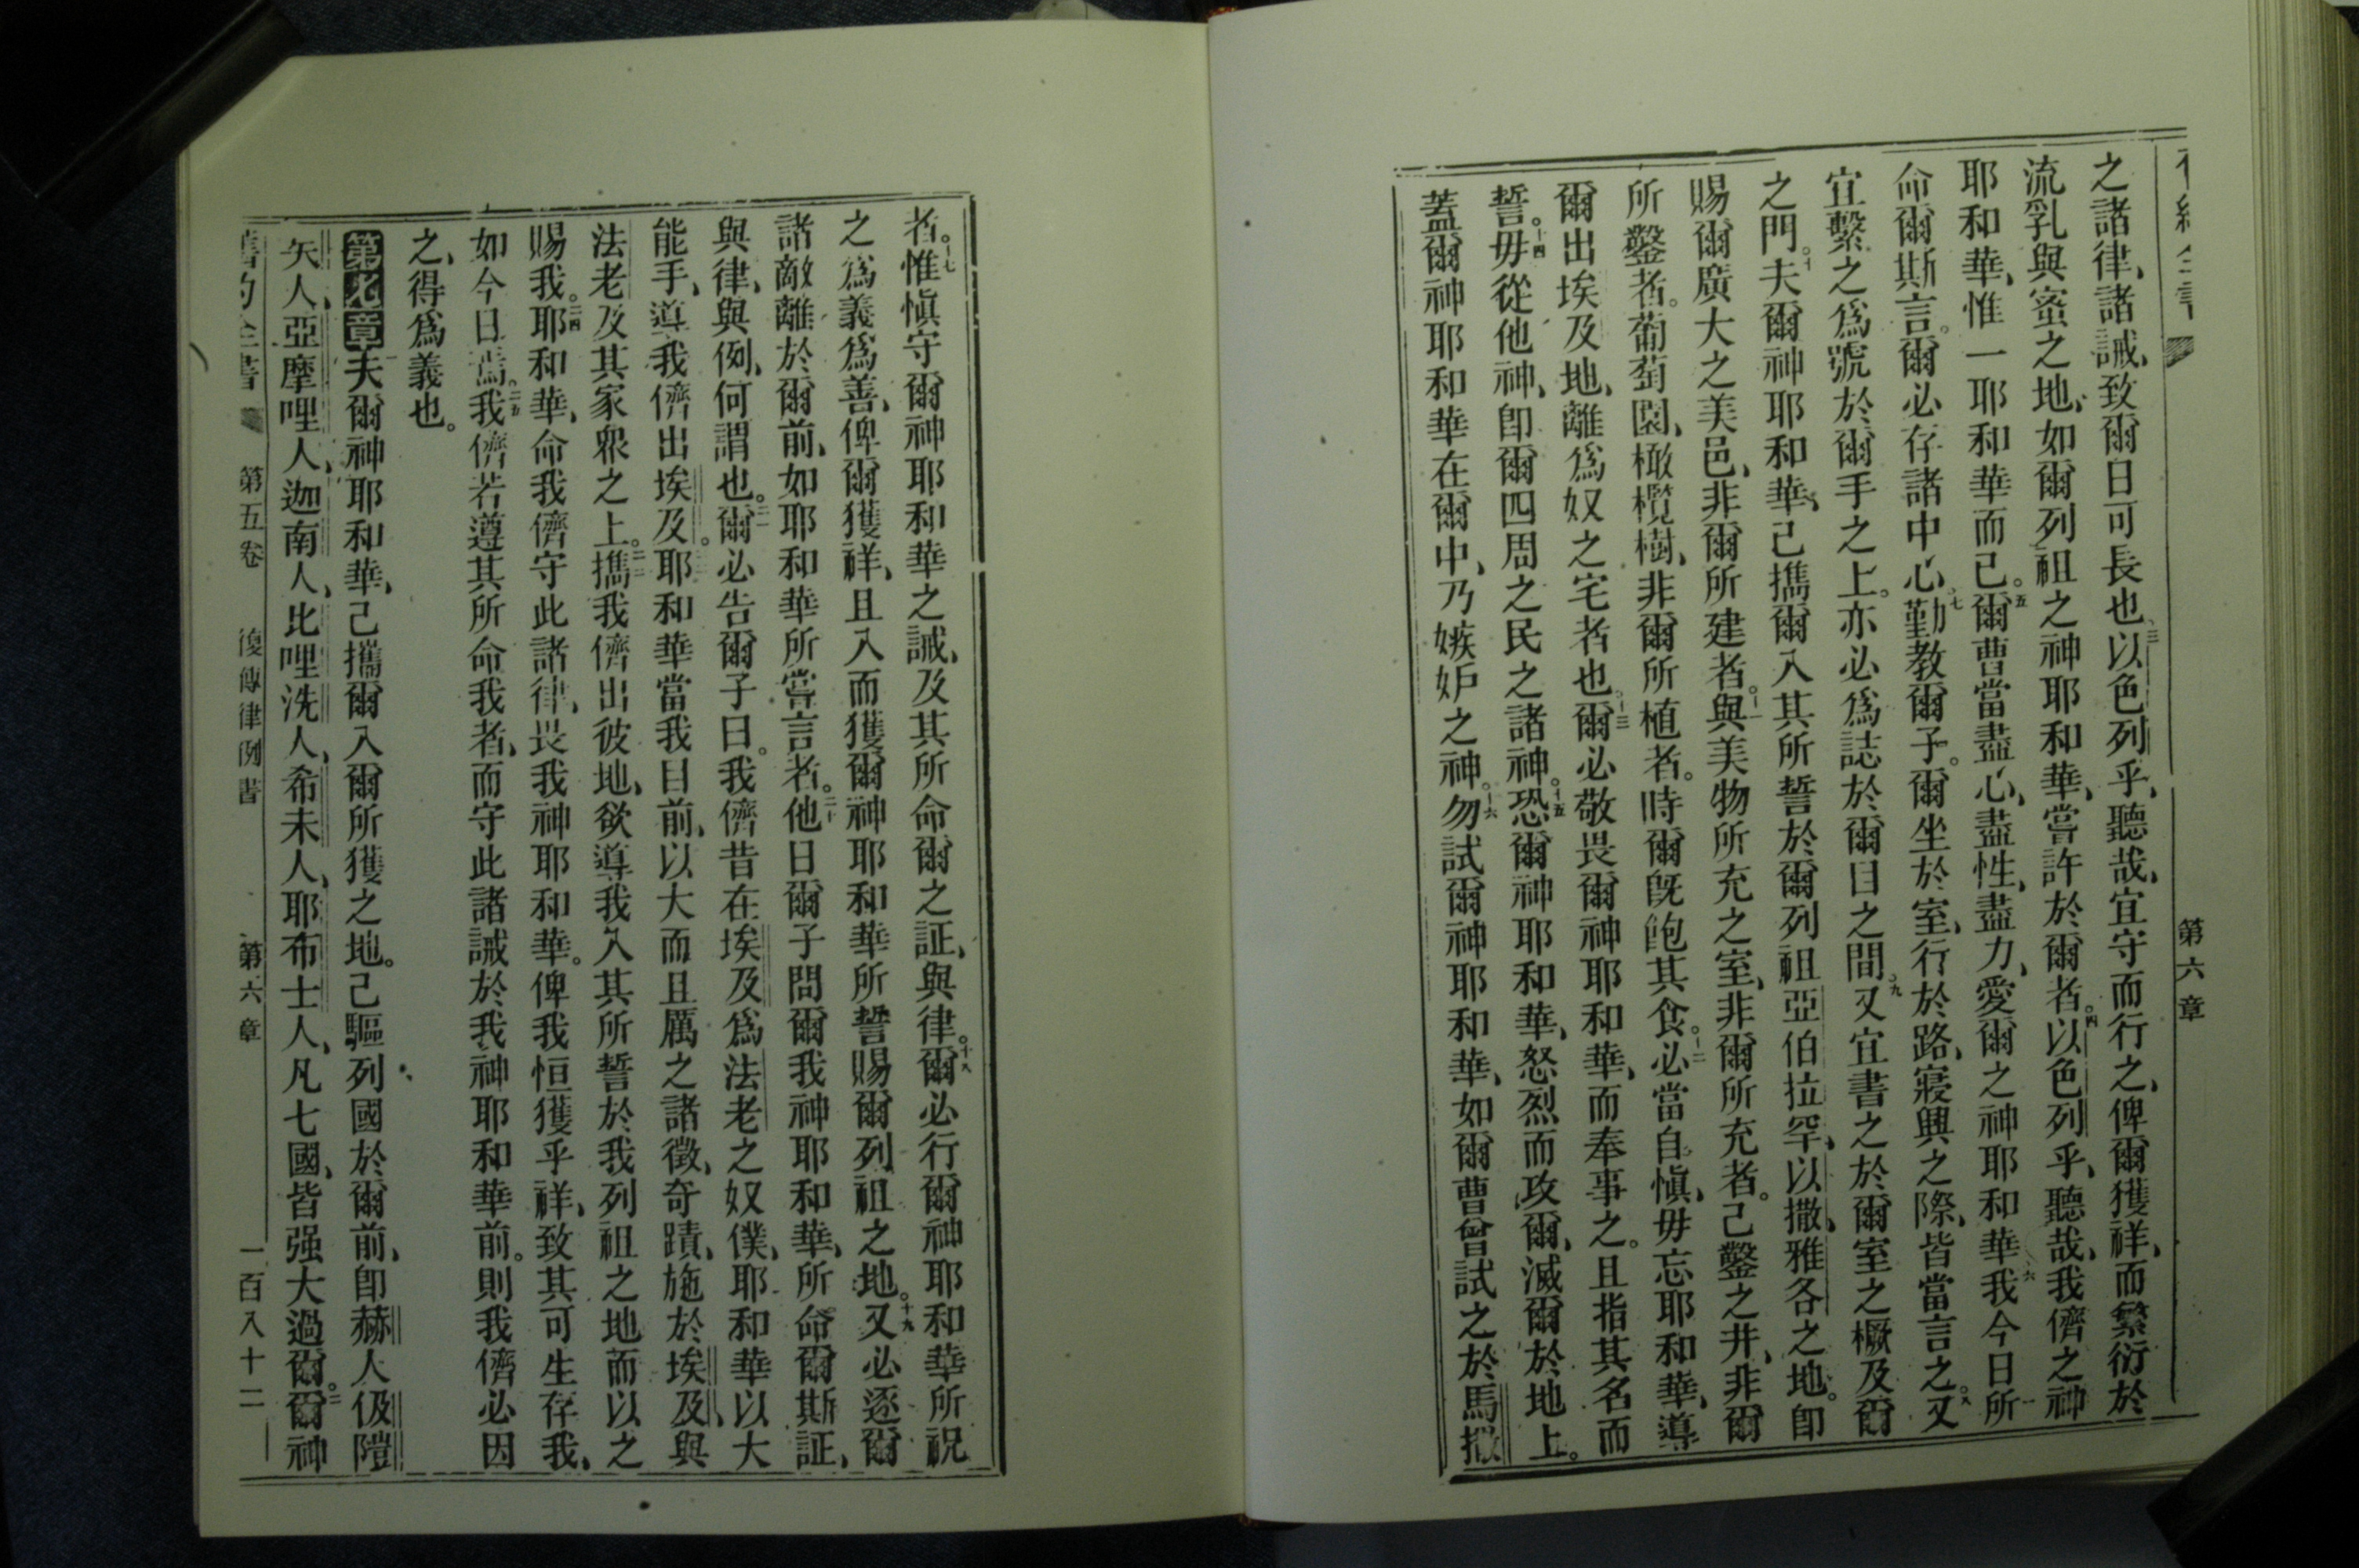 第六章
之諸律、諸誡、致爾日可長也、三以色列乎、聽哉、宜守而行之、俾爾獲祥、而繁衍於
流乳與蜜之地、如爾列祖之神耶和華、嘗許於爾者。四以色列乎、聽哉、我儕之神
耶和華、惟一耶和華而已。五爾曹當盡心、盡性、盡力、愛爾之神耶和華、六我今日所
命爾斯言。爾必存諸中心、七勤教爾子。爾坐於室、行於路、寢興之際、皆當言之。八又
宜繫之爲號於爾手之上。亦必爲誌於爾目之間。九又宜書之於爾室之橛及爾
之門。十夫爾神耶和華、己擕爾入其所誓於爾列祖亞伯拉罕、以撒、雅各之地。卽
賜爾廣大之美邑、非爾所建者。十一與美物所充之室、非爾所充者。己鑿之井、非爾
所鑿者。葡萄園、橄欖樹、非爾所植者。時爾旣飽其食。十二必當自愼、毋忘耶和華、導
爾出埃及地、離爲奴之宅者也。十三爾必敬畏爾神耶和華、而奉事之。且指其名而
誓。十四毋從他神、卽爾四周之民之諸神。十五恐爾神耶和華、怒烈而攻爾、滅爾於地上。
蓋爾神耶和華在爾中、乃嫉妒之神。十六勿試爾神耶和華、如爾曹曾試之於馬撒
者。十七惟愼守爾神耶和華之誡、及其所命爾之証、與律。十八爾必行爾神耶和華所視
之爲義爲善、俾爾獲祥、且入而獲爾神耶和華所誓賜爾列祖之地。十九又必逐爾
諸敵離於爾前、如耶和華所嘗言者。二十他日爾子問爾我神耶和華、所命爾斯証、
與律、與例、何謂也。二一爾必告爾子曰。我儕昔在埃及爲法老之奴僕、耶和華以大
能手、導我儕出埃及。二二耶和華當我目前、以大而且厲之諸徵、奇蹟、施於埃及、與
法老及其家衆之上。二三擕我儕出彼地、欲導我入其所誓於我列祖之地而以之
賜我。二四耶和華、命我儕守此諸律、畏我神耶和華。俾我恒獲乎祥、致其可生存我、
如今日焉。二五我儕若遵其所命我者、而守此諸誡於我神耶和華前。則我儕必因
之、得爲義也。
第七章夫爾神耶和華、己攜爾入爾所獲之地。己驅列國於爾前、卽赫人伋隑
矢人、亞摩哩人、迦南人、比哩洗人、希未人、耶布士人、凡七國、皆强大過爾。二爾神
舊約全書 第五卷 復傳律例書 第六章 一百八十二